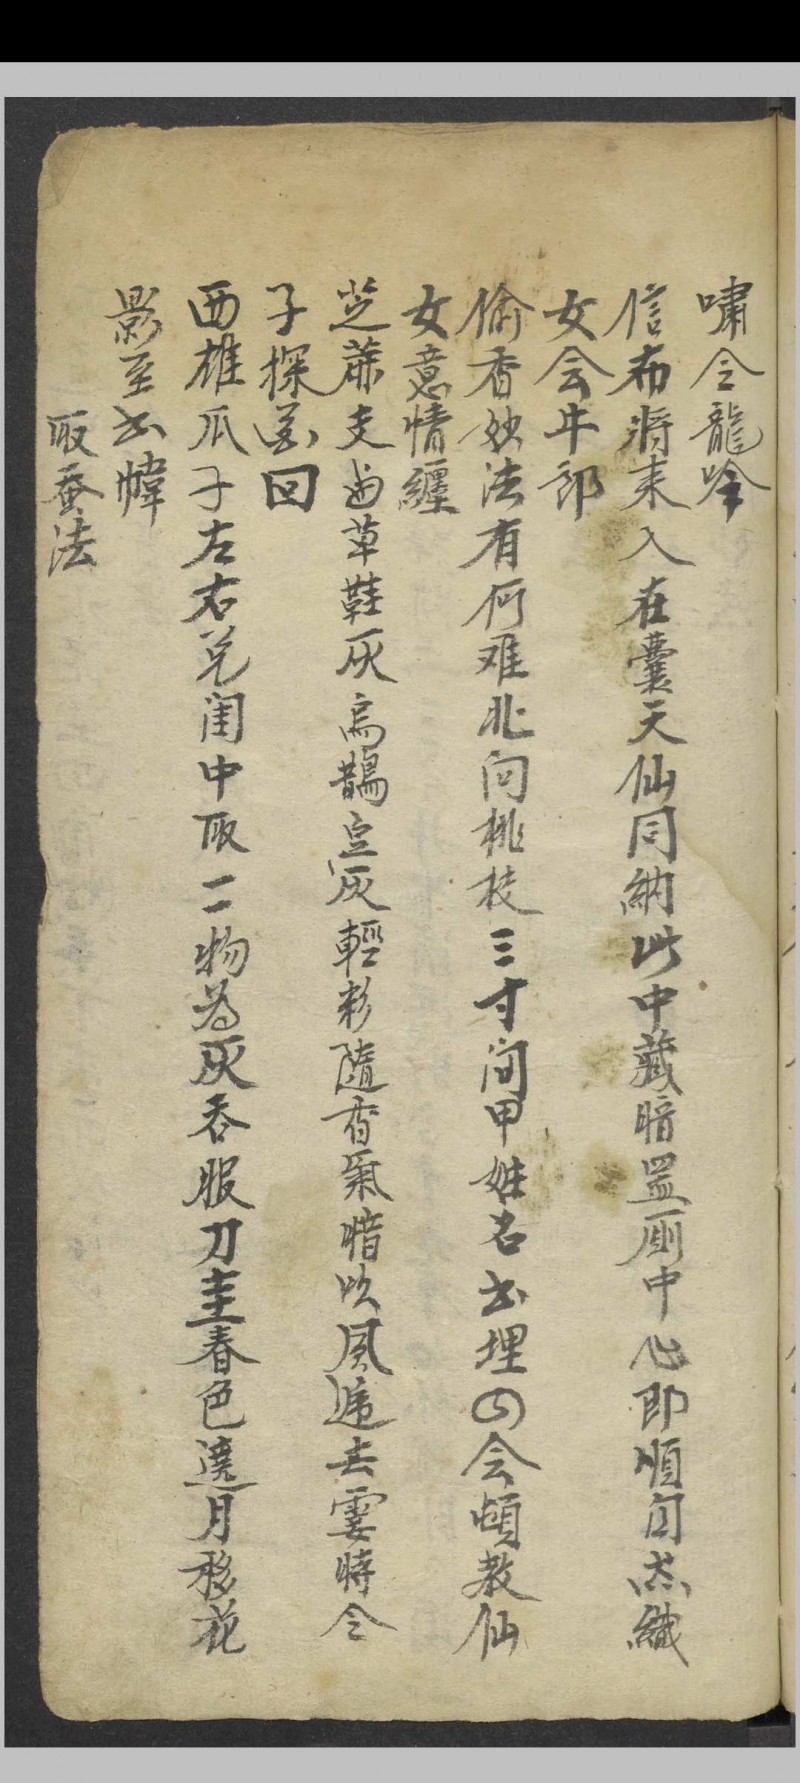 啸令龍吟
信布將来入在囊天仙同納此中藏暗置厠中心即順自然織
女会牛郎
偷香妙法有何难北向桃枝三寸间甲姓名书埋四会頓教仙
女意情纏
芝蔴支歯草鞋灰烏鵲灰輕彩隨香氣暗吹風遞去霎時令
子探花回
西雄瓜子左右兑闺中取二物為灰吞服刀圭春色遶月移花
影至书幃
取蚕法